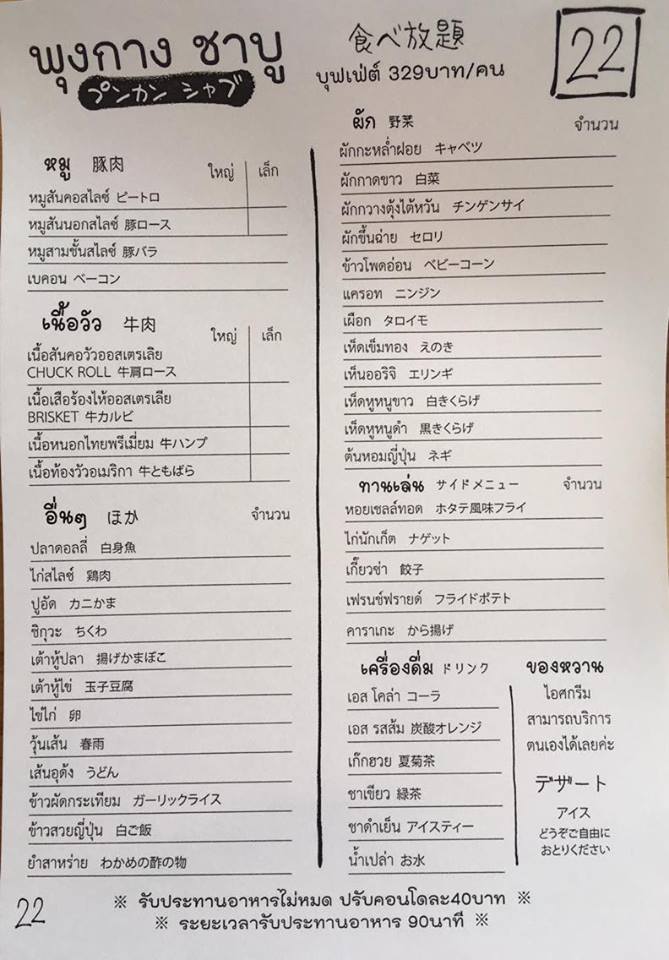 พุงกาง ชาบู
プンカン シャブ
食べ放題
บุฟเฟ่ต์ 329บาท/คน
22
หมู 豚肉 ใหญ่ เล็ก
หมูสันคอสไลซ์ ピートロ
หมูสันนอกสไลซ์ 豚ロース
หมูสามชั้นสไลซ์ 豚バラ
เบคอน ベーコン
เนื้อวัว 牛肉 ใหญ่ เล็ก
เนื้อสันคอวัวออสเตรเลีย
CHUCK ROLL 牛肩ロース
เนื้อเสือร้องไห้ออสเตรเลีย
BRISKET 牛カルビ
เนื้อหนอกไทยพรีเมี่ยม 牛ハンプ
เนื้อท้องวัวอเมริกา 牛ともばら
อื่นๆ ほか จำนวน
ปลาดอลลี่ 白身魚
ไก่สไลซ์ 鶏肉
ปูอัด カニかま
ชิกุวะ ちくわ
เต้าหู้ปลา 揚げかまぼこ
เต้าหู้ไข่ 玉子豆腐
ไข่ไก่ 卵
วุ้นเส้น 春雨
เส้นอุด้ง うどん
ข้าวผัดกระเทียม ガーリックライス
ข้าวสวยญี่ปุ่น 白ご飯
ยำสาหร่าย わかめの酢の物
ผัก 野菜 จำนวน
ผักกะหล่ำฝอย キャベツ
ผักกาดขาว 白菜
ผักกวางตุ้งไต้หวัน チンゲンサイ
ผักขึ้นฉ่าย セロリ
ข้าวโพดอ่อน ベビーコーン
แครอท ニンジン
เผือก タロイモ
เห็ดเข็มทอง えのき
เห็นออริจิ エリンギ
เห็ดหูหนูขาว 白きくらげ
เห็ดหูหนูดำ 黒きくらげ
ต้นหอมญี่ปุ่น ネギ
ทานเล่น サイドメニュー จำนวน
หอยเชลล์ทอด ホタテ風味フライ
ไก่นักเก็ต ナゲット
เกี๊ยวซ่า 餃子
เฟรนช์ฟรายด์ フライドポテト
คาราเกะ から揚げ
เครื่องดื่ม ドリンク
เอส โคล่า コーラ
เอส รสส้ม 炭酸オレンジ
เก๊กฮวย 夏菊茶
ชาเขียว 緑茶
ชาดำเย็น アイスティー
น้ำเปล่า お水
ของหวาน
ไอศกรีม
สามารถบริการ
ตนเองได้เลยค่ะ
デザート
アイス
どうぞご自由に
おとりください
22
※ รับประทานอาหารไม่หมด ปรับคอนโดละ40บาท ※
※ ระยะเวลารับประทานอาหาร 90นาที ※